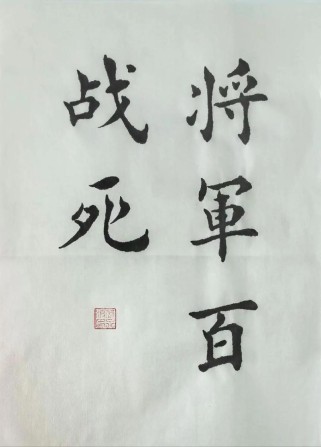 将軍百
战死